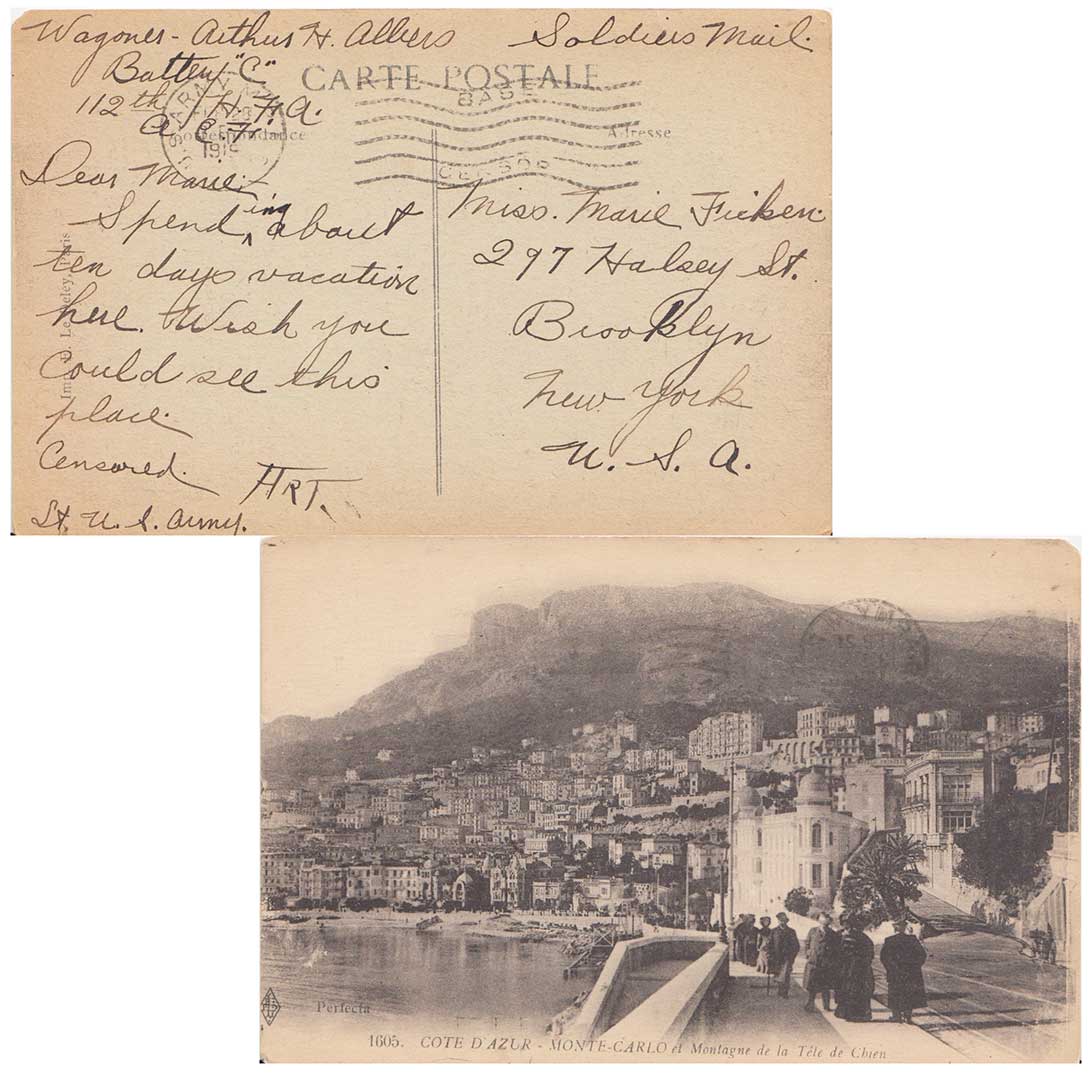 Wagoner - Arthur H. Albers
Soldiers Mail.
Battery "C"
CARTE POSTALE
112th H. F. A.
A. E. F.
BASE
CENSOR
ARMY
1919
Correspondance
Adresse
Dear Marie:-
Spending about
ten days vacation
here. Wish you
could see this
place.
Censored.
ART.
Lt. U. S. Army.
Miss. Marie Ficken.
297 Halsey St.
Brooklyn
New York
U. S. A.
Paris
Perfecta
1605. COTE D'AZUR - MONTE-CARLO et Montagne de la Tête de Chien